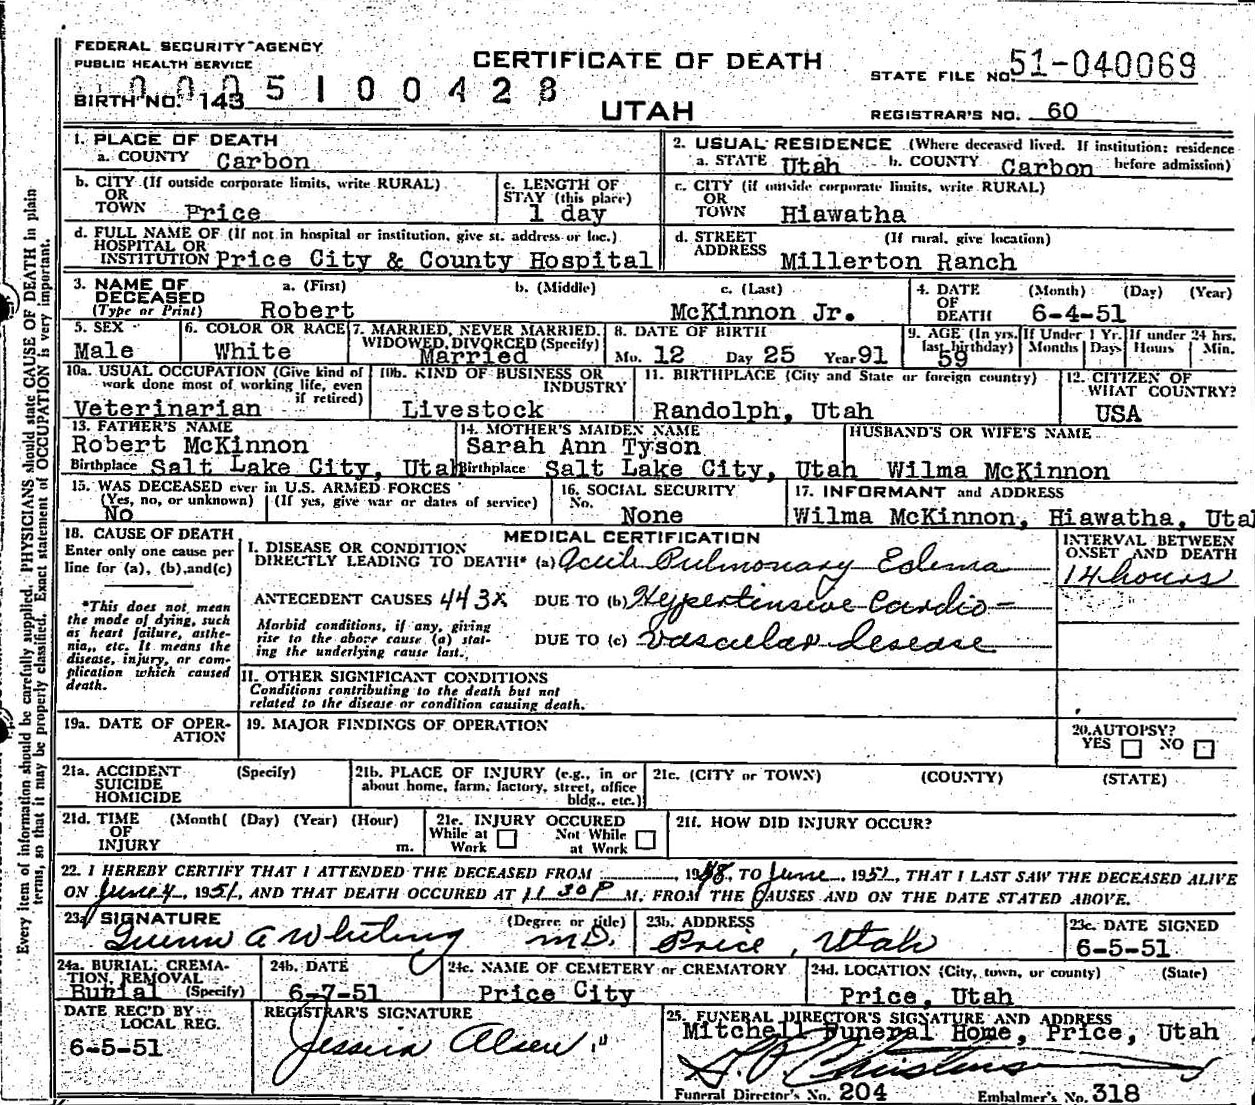 FEDERAL SECURITY AGENCY
PUBLIC HEALTH SERVICE
CERTIFICATE OF DEATH
STATE FILE NO. 51-040069
0005100428
BIRTH NO. 143
UTAH
REGISTRAR'S NO. 60
Every item of information should be carefully supplied. PHYSICIANS should state CAUSE OF DEATH in plain
terms, so that it may be properly classified. Exact statement of OCCUPATION is very important.
1. PLACE OF DEATH
a. COUNTY Carbon
2. USUAL RESIDENCE (Where deceased lived. If institution: residence
a. STATE Utah b. COUNTY Carbon before admission)
b. CITY (If outside corporate limits, write RURAL)
OR
TOWN Price
c. LENGTH OF
STAY (this place)
1 day
c. CITY (if outside corporate limits, write RURAL)
OR
TOWN Hiawatha
d. FULL NAME OF (If not in hospital or institution, give st. address or loc.)
HOSPITAL OR
INSTITUTION Price City & County Hospital
d. STREET (If rural, give location)
ADDRESS
Millerton Ranch
3. NAME OF DECEASED (Type or Print)
a. (First) b. (Middle) c. (Last)
Robert McKinnon Jr.
4. DATE OF DEATH (Month) (Day) (Year)
6-4-51
5. SEX
Male
6. COLOR OR RACE
White
7. MARRIED, NEVER MARRIED,
WIDOWED, DIVORCED (Specify)
Married
8. DATE OF BIRTH
Mo. 12 Day 25 Year 91
9. AGE (In yrs. last birthday)
59
If Under 1 Yr. Months Days
If under 24 hrs. Hours Min.
10a. USUAL OCCUPATION (Give kind of
work done most of working life, even
if retired)
Veterinarian
10b. KIND OF BUSINESS OR
INDUSTRY
Livestock
11. BIRTHPLACE (City and State or foreign country)
Randolph, Utah
12. CITIZEN OF
WHAT COUNTRY?
USA
13. FATHER'S NAME
Robert McKinnon
Birthplace Salt Lake City, Utah
14. MOTHER'S MAIDEN NAME
Sarah Ann Tyson
Birthplace Salt Lake City, Utah
HUSBAND'S OR WIFE'S NAME
Wilma McKinnon
15. WAS DECEASED ever in U.S. ARMED FORCES
(Yes, no, or unknown) (If yes, give war or dates of service)
No
16. SOCIAL SECURITY
No.
None
17. INFORMANT and ADDRESS
Wilma McKinnon, Hiawatha, Uta
18. CAUSE OF DEATH
Enter only one cause per
line for (a), (b), and (c)
*This does not mean
the mode of dying, such
as heart failure, asthe-
nia, etc. It means the
disease, injury, or com-
plication which caused
death.
MEDICAL CERTIFICATION
I. DISEASE OR CONDITION
DIRECTLY LEADING TO DEATH* (a) Acute Pulmonary Edema
INTERVAL BETWEEN
ONSET AND DEATH
14 hours
ANTECEDENT CAUSES 443X DUE TO (b) Hypertensive Cardio-
Morbid conditions, if any, giving
rise to the above cause (a) stat-
ing the underlying cause last.
DUE TO (c) vascular disease
II. OTHER SIGNIFICANT CONDITIONS
Conditions contributing to the death but not
related to the disease or condition causing death.
19a. DATE OF OPER-
ATION
19. MAJOR FINDINGS OF OPERATION
20. AUTOPSY?
YES NO
21a. ACCIDENT (Specify)
SUICIDE
HOMICIDE
21b. PLACE OF INJURY (e.g., in or
about home, farm, factory, street, office
bldg., etc.)
21c. (CITY or TOWN) (COUNTY) (STATE)
21d. TIME (Month( (Day) (Year) (Hour)
OF
INJURY m.
21e. INJURY OCCURED
While at Work Not While at Work
21f. HOW DID INJURY OCCUR?
22. I HEREBY CERTIFY THAT I ATTENDED THE DECEASED FROM , 1948, TO June, 1951, THAT I LAST SAW THE DECEASED ALIVE
ON June 4, 1951, AND THAT DEATH OCCURED AT 11 30 P M. FROM THE CAUSES AND ON THE DATE STATED ABOVE.
23a SIGNATURE (Degree or title)
Quinn A Whiting M.D.
23b. ADDRESS
Price, Utah
23c. DATE SIGNED
6-5-51
24a. BURIAL, CREMA-
TION, REMOVAL
Burial (Specify)
24b. DATE
6-7-51
24c. NAME OF CEMETERY or CREMATORY
Price City
24d. LOCATION (City, town, or county) (State)
Price, Utah
DATE REC'D BY
LOCAL REG.
6-5-51
REGISTRAR'S SIGNATURE
Jessica Olsen
25. FUNERAL DIRECTOR'S SIGNATURE AND ADDRESS
Mitchell Funeral Home, Price, Utah
Funeral Director's No. 204 Embalmer's No. 318